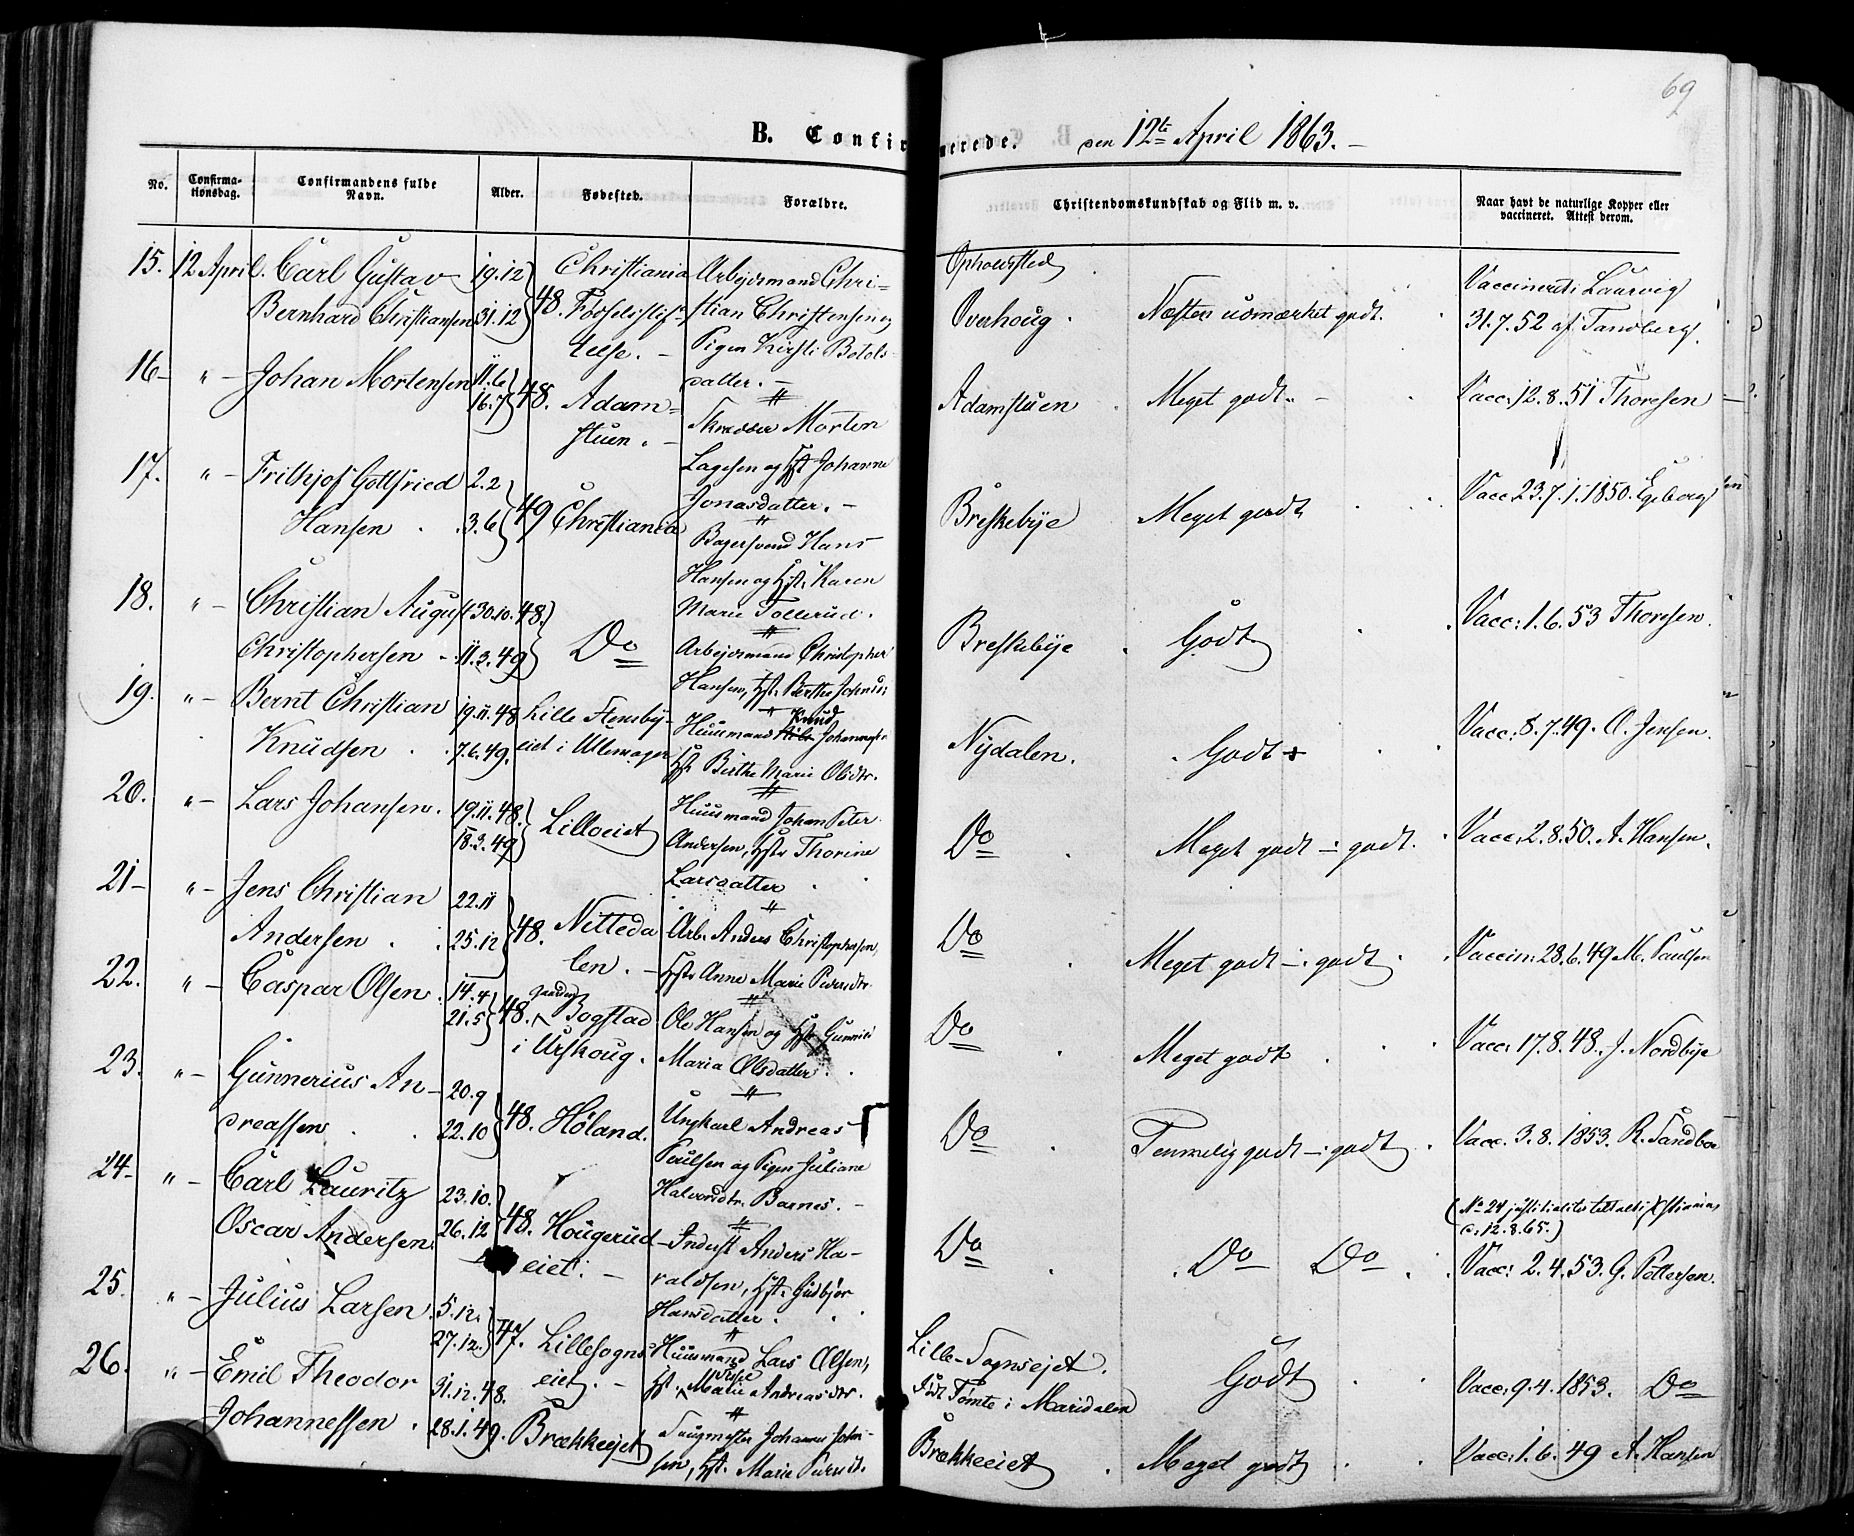 69
B. Confirmerede. den 12te April 1863.-
No. Confirma-tionsdag. Confirmandens fulde Navn. Alder. Fødested. Forældre. Christendomskundskab og Flid m. v. Naar havt de naturlige Kopper eller vaccineret. Attest derom.
Opholdssted
15. 12 April. Carl Gustav 19.12 Christiania Arbejdsmand Chri-
Bernhard Christiansen 31.12 48. Fødselsstif- stian Christensen og Overhoug. Næsten udmærket godt. Vaccineret i Laurvig
telse. - Pigen Kirsti Botols- 31.7.52 af Tandberg.
datter. -
16- " - Johan Mortensen 11.6 48. Adam- Skrædder Morten Adamstuen Meget godt. - Vacc. 12.8.51 Thoresen
16.7 stuen. - Lagesen og Hst Johanne
Jonasdatter. -
17. " - Frithjof Gottfried 2.2 49 Christiania Bagersvend Hans Briskebye Meget godt Vacc 23.7.1.1850. Egeberg
Hansen . 3.6 Hansen og Hst. Karen
Marie Tollerud.
18. " - Christian August 30.10.48. Do Arbejdsmand Christopher Breskebye Godt Vacc: 1.6.53 Thoresen.
Christophersen - 11.3.49 Hansen, Hst. Berthe
19. " - Bernt Christian 19.11.48 Lille Huusmand Knud Johannes Nydalen. Godt + Vacc: 8.7.49. O. Jensen.
Knudsen . 7.6.49. eiet i Ullensager Hst Birthe Marie Olsdtr.
20. " - Lars Johansen. 19.11.48. Lilloeiet Huusmand Johan Peter Do Meget godt - godt. Vacc. 2.8.50. A. Hansen.
18.3.49 Andersen, Hstr Thorine
Larsdatter
21- " - Jens Christian 22.11 48. Nitteda Arb. Anders Christophersen, Do Meget godt - godt Vaccin: 28.6.49 M. Paulsen
Andersen . 25.12 len. - Hstr Anne Marie Pedersdtr
22. " - Caspar Olsen. 14.4 48. Gaarden Bogstad Ole Hansen og Hst Do Meget godt Vacc: 17.8.48. J. Nordbye
21.5 i Urskoug. Maria Olsdatter.
23. " - Gunnerius An- 20.9 48. Høland. Ungkarl Andreas Do Temmelig godt - godt Vacc. 3.8.1853. R. Sandboe
dreassen . 22.10 Paulsen og Pigen Juliane
Halvorsdtr. Barnes. -
24- " - Carl Lauritz 23.10. 48. Hougerud- Inderst Anders Ha- Do Do Do (No 24
Oscar Andersen. 26.12 eiet. - raldsen, Hst. Gudbjør d. 12.8.65.)
Hansdatter. Vacc: 2.4.53. G. Pettersen.
25. " - Julius Larsen 5.12. 47. Lillesogns- Huusmand Lars Olsen, Lille-Sognsejet. Godt Vacc. 9.4.1853. Do
27.12. eiet. - Hst. Andreasdtr. født Tømte i Maridalen
26. " - Emil Theodor 31.12.48. Brækkeejet Saugmester Johannes Johan- Brækkeeiet Meget godt Vacc: 1.6.49 A. Hansen
Johannessen . 28.1.49. sen, Hst. Marie